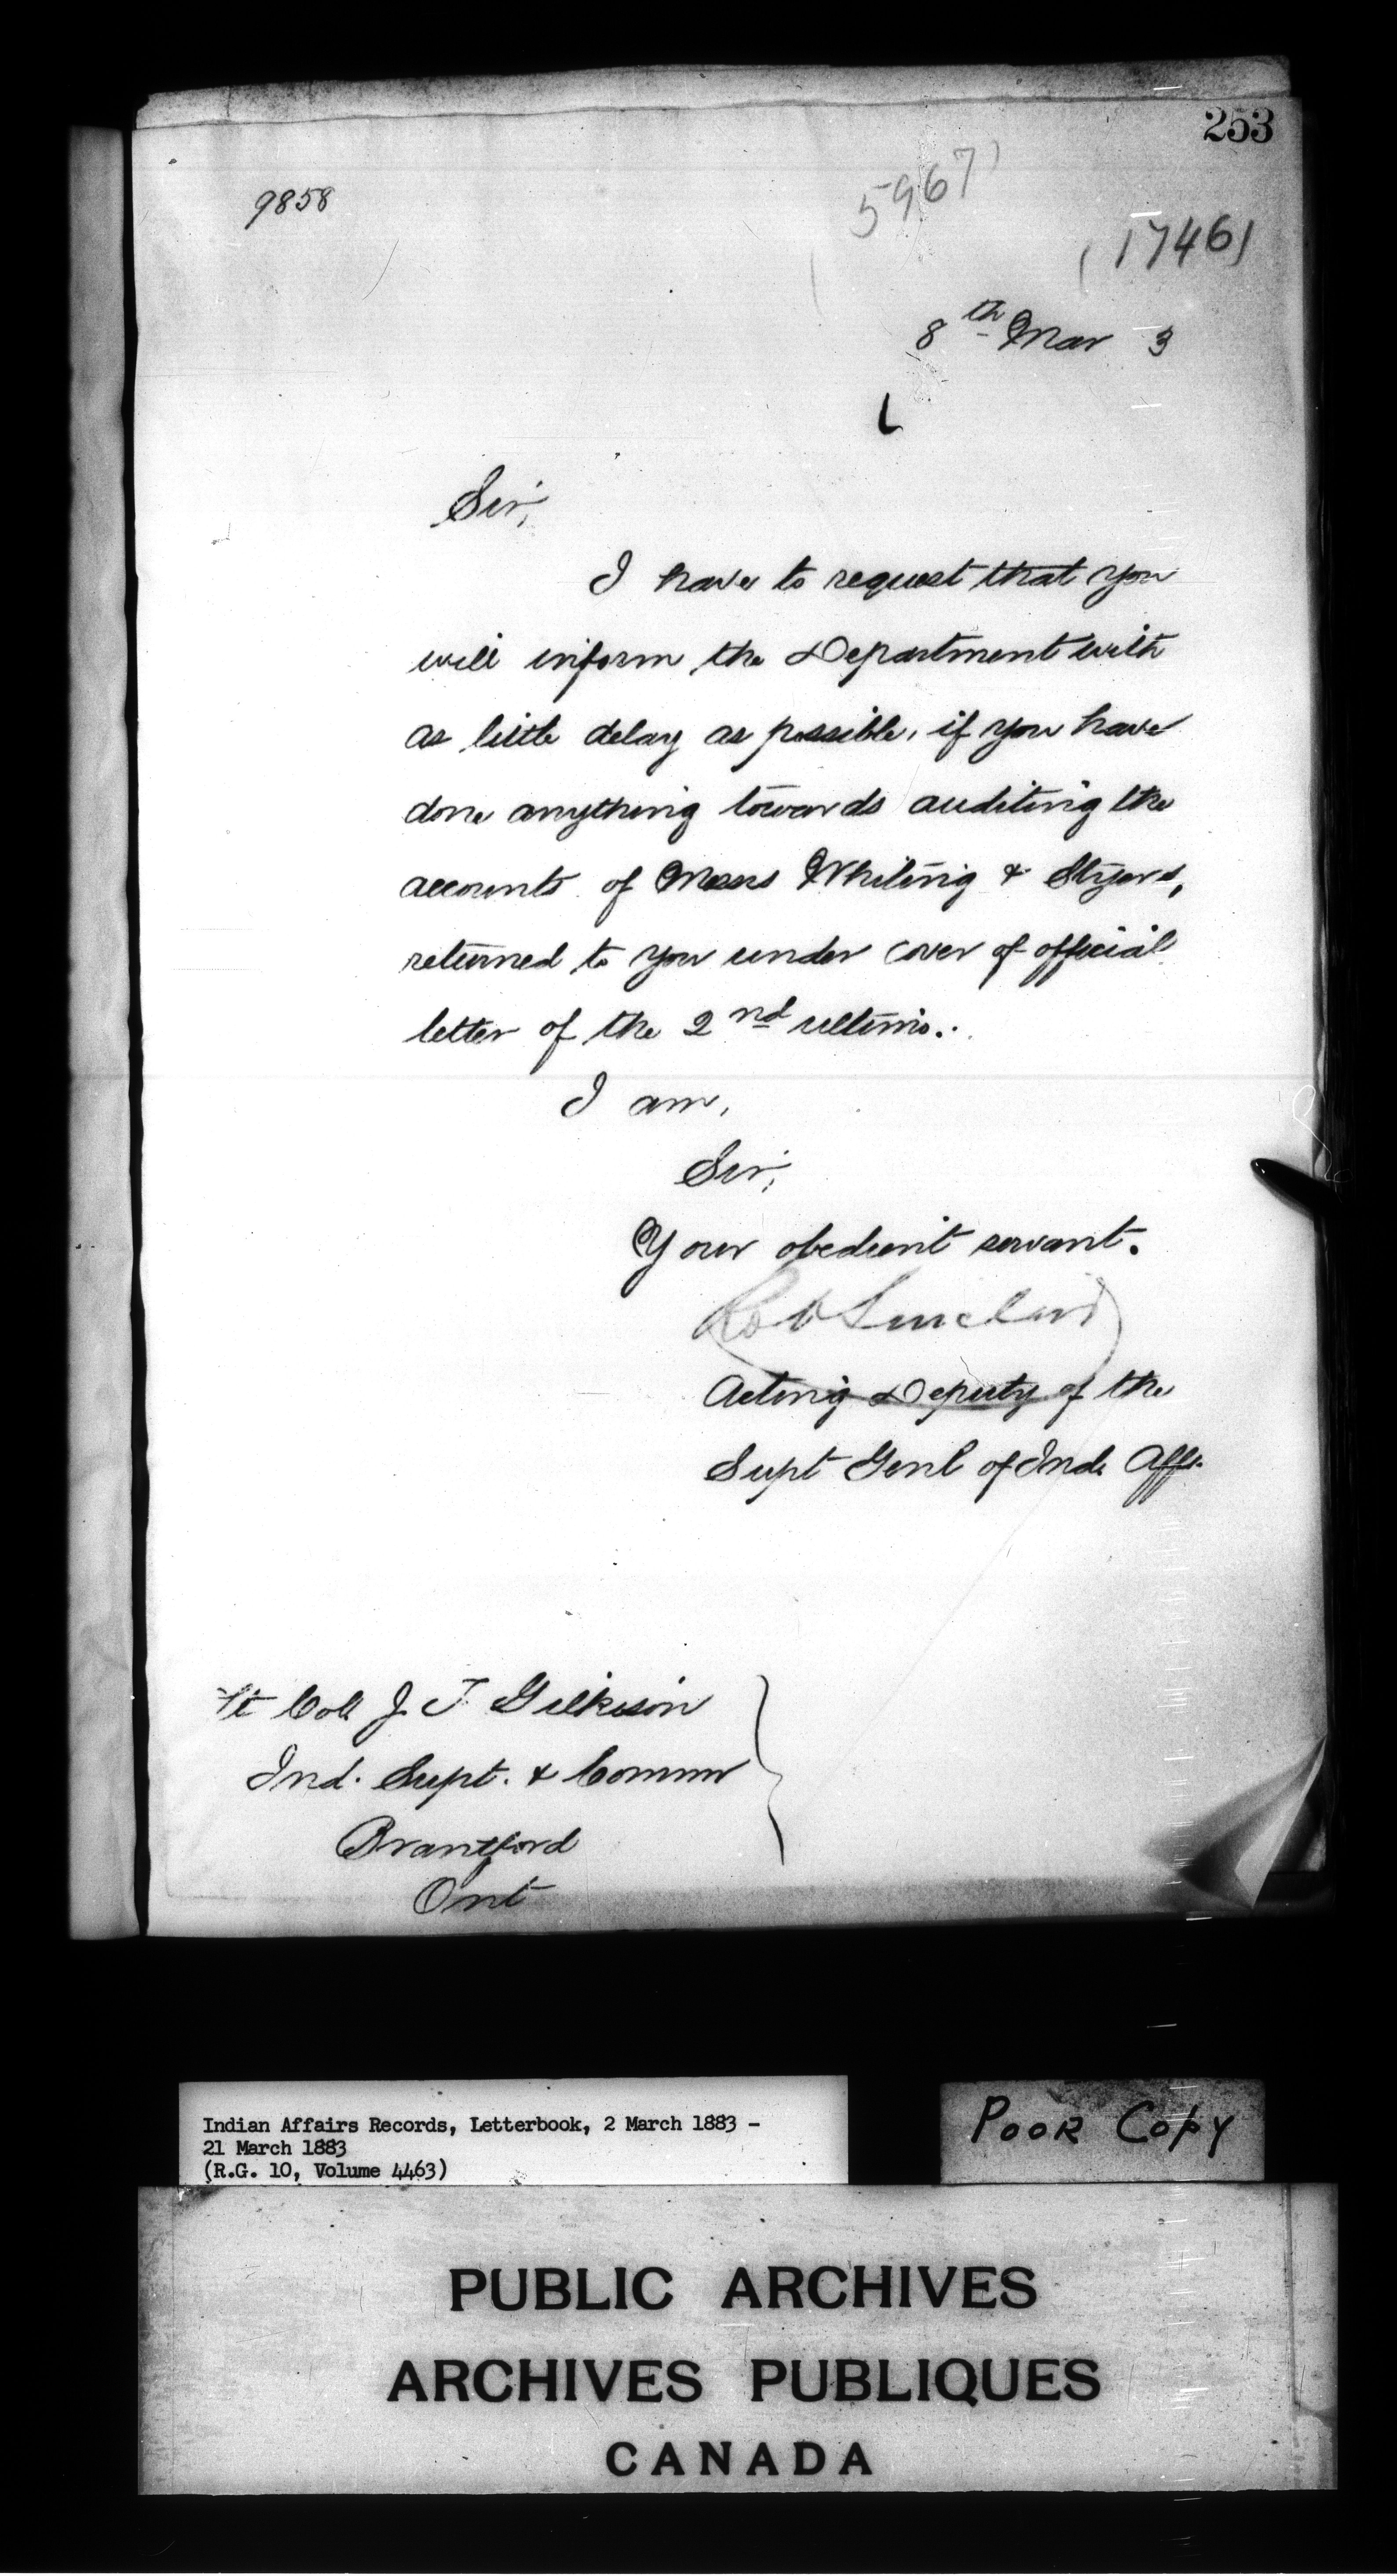 253
9858
5967)
(1746)
8th Mar 3
Sir,
I have to request that you
will inform the Department with
as little delay as possible, if you have
done anything towards auditing the
accounts of Messrs Whiting & Styers,
returned to you under cover of official
letter of the 2nd ultimo.
I am,
Sir,
Your obedient servant.
Rob Sinclair
Acting Deputy of the
Supt Genl of Ind. Affs.
Lt Coll J. T Gilkison
Ind. Supt. & Commr
Brantford
Ont
Indian Affairs Records, Letterbook, 2 March 1883 -
21 March 1883
(R.G. 10, Volume 4463)
POOR COPY
PUBLIC ARCHIVES
ARCHIVES PUBLIQUES
CANADA